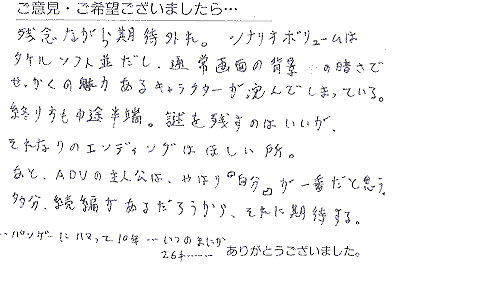 ご意見・ご希望ございましたら…
残念ながら期待外れ。シナリオボリュームは
タケルソフト並だし、通常画面の背景の暗さで
せっかくの魅力あるキャラクターが沈んでしまっている。
終り方も中途半端。謎を残すのはいいが、
それなりのエンディングはほしい所。
あと、ADVの主人公は、やはり『自分』が一番だと思う。
多分、続編があるだろうから、それに期待する。
…バンゲーにハマって10年…いつのまにか
26才……
ありがとうございました。